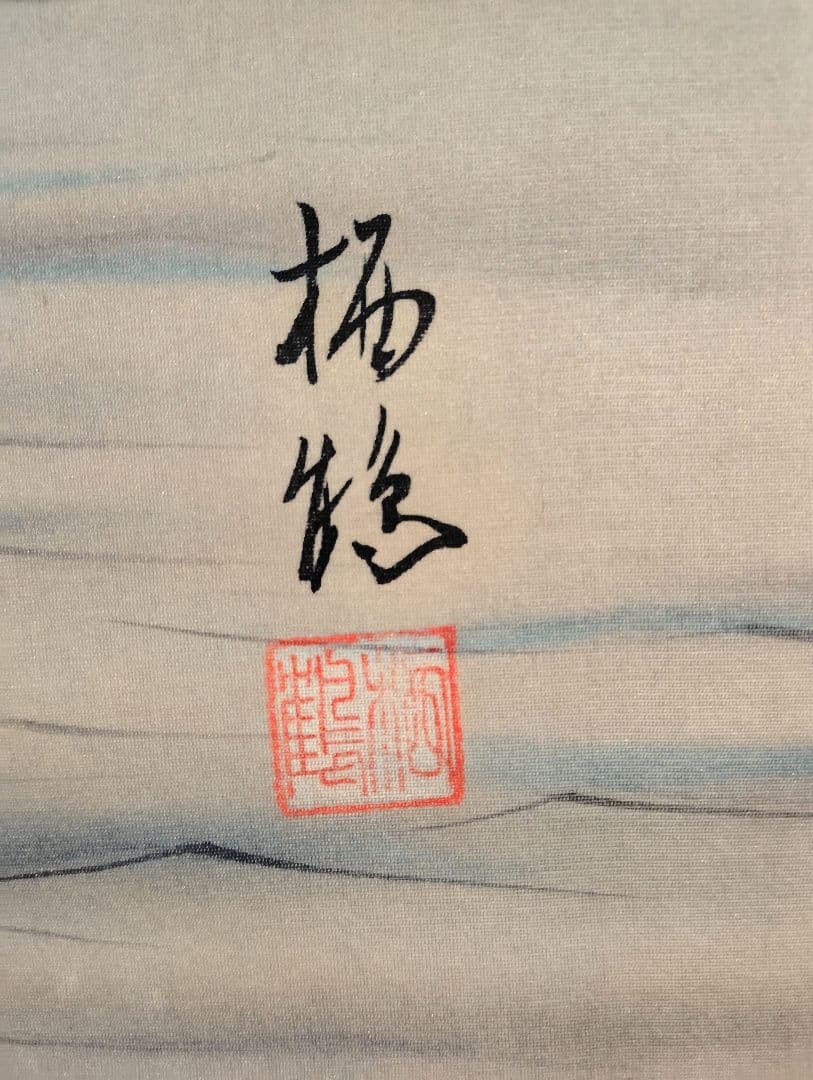 栖
鶴
栖鶴